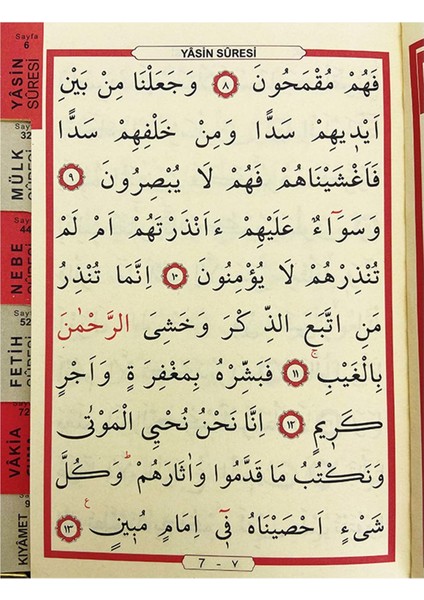 Sayfa
6
YÂSİN
SÛRESİ
32
MÜLK
44
NEBE
52
FETİH
72
VÂKIA
KIYÂMET
YÂSİN SÛRESİ
فَهُمْ مُقْمَحُونَ ﴿٨﴾ وَجَعَلْنَا مِنْ بَيْنِ
اَيْدٖيهِمْ سَدًّا وَمِنْ خَلْفِهِمْ سَدًّا
فَاَغْشَيْنَاهُمْ فَهُمْ لَا يُبْصِرُونَ ﴿٩﴾
وَسَوَٓاءٌ عَلَيْهِمْ ءَاَنْذَرْتَهُمْ اَمْ لَمْ
تُنْذِرْهُمْ لَا يُؤْمِنُونَ ﴿١٠﴾ اِنَّمَا تُنْذِرُ
مَنِ اتَّبَعَ الذِّكْرَ وَخَشِىَ الرَّحْمٰنَ
بِالْغَيْبِۚ ﴿١١﴾ فَبَشِّرْهُ بِمَغْفِرَةٍ وَاَجْرٍ
كَرٖيمٍ ﴿١٢﴾ اِنَّا نَحْنُ نُحْيِي الْمَوْتٰى
وَنَكْتُبُ مَا قَدَّمُوا وَاٰثَارَهُمْۜ وَكُلَّ
شَىْءٍ اَحْصَيْنَاهُ فٖٓى اِمَامٍ مُبٖينٍ ﴿١٣﴾ ع
7 - ٧